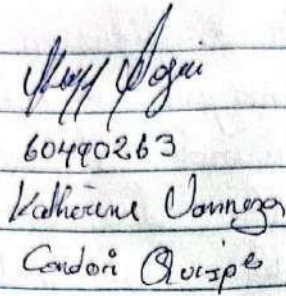 60490263
Katherine Vanneza
Condori Quispe